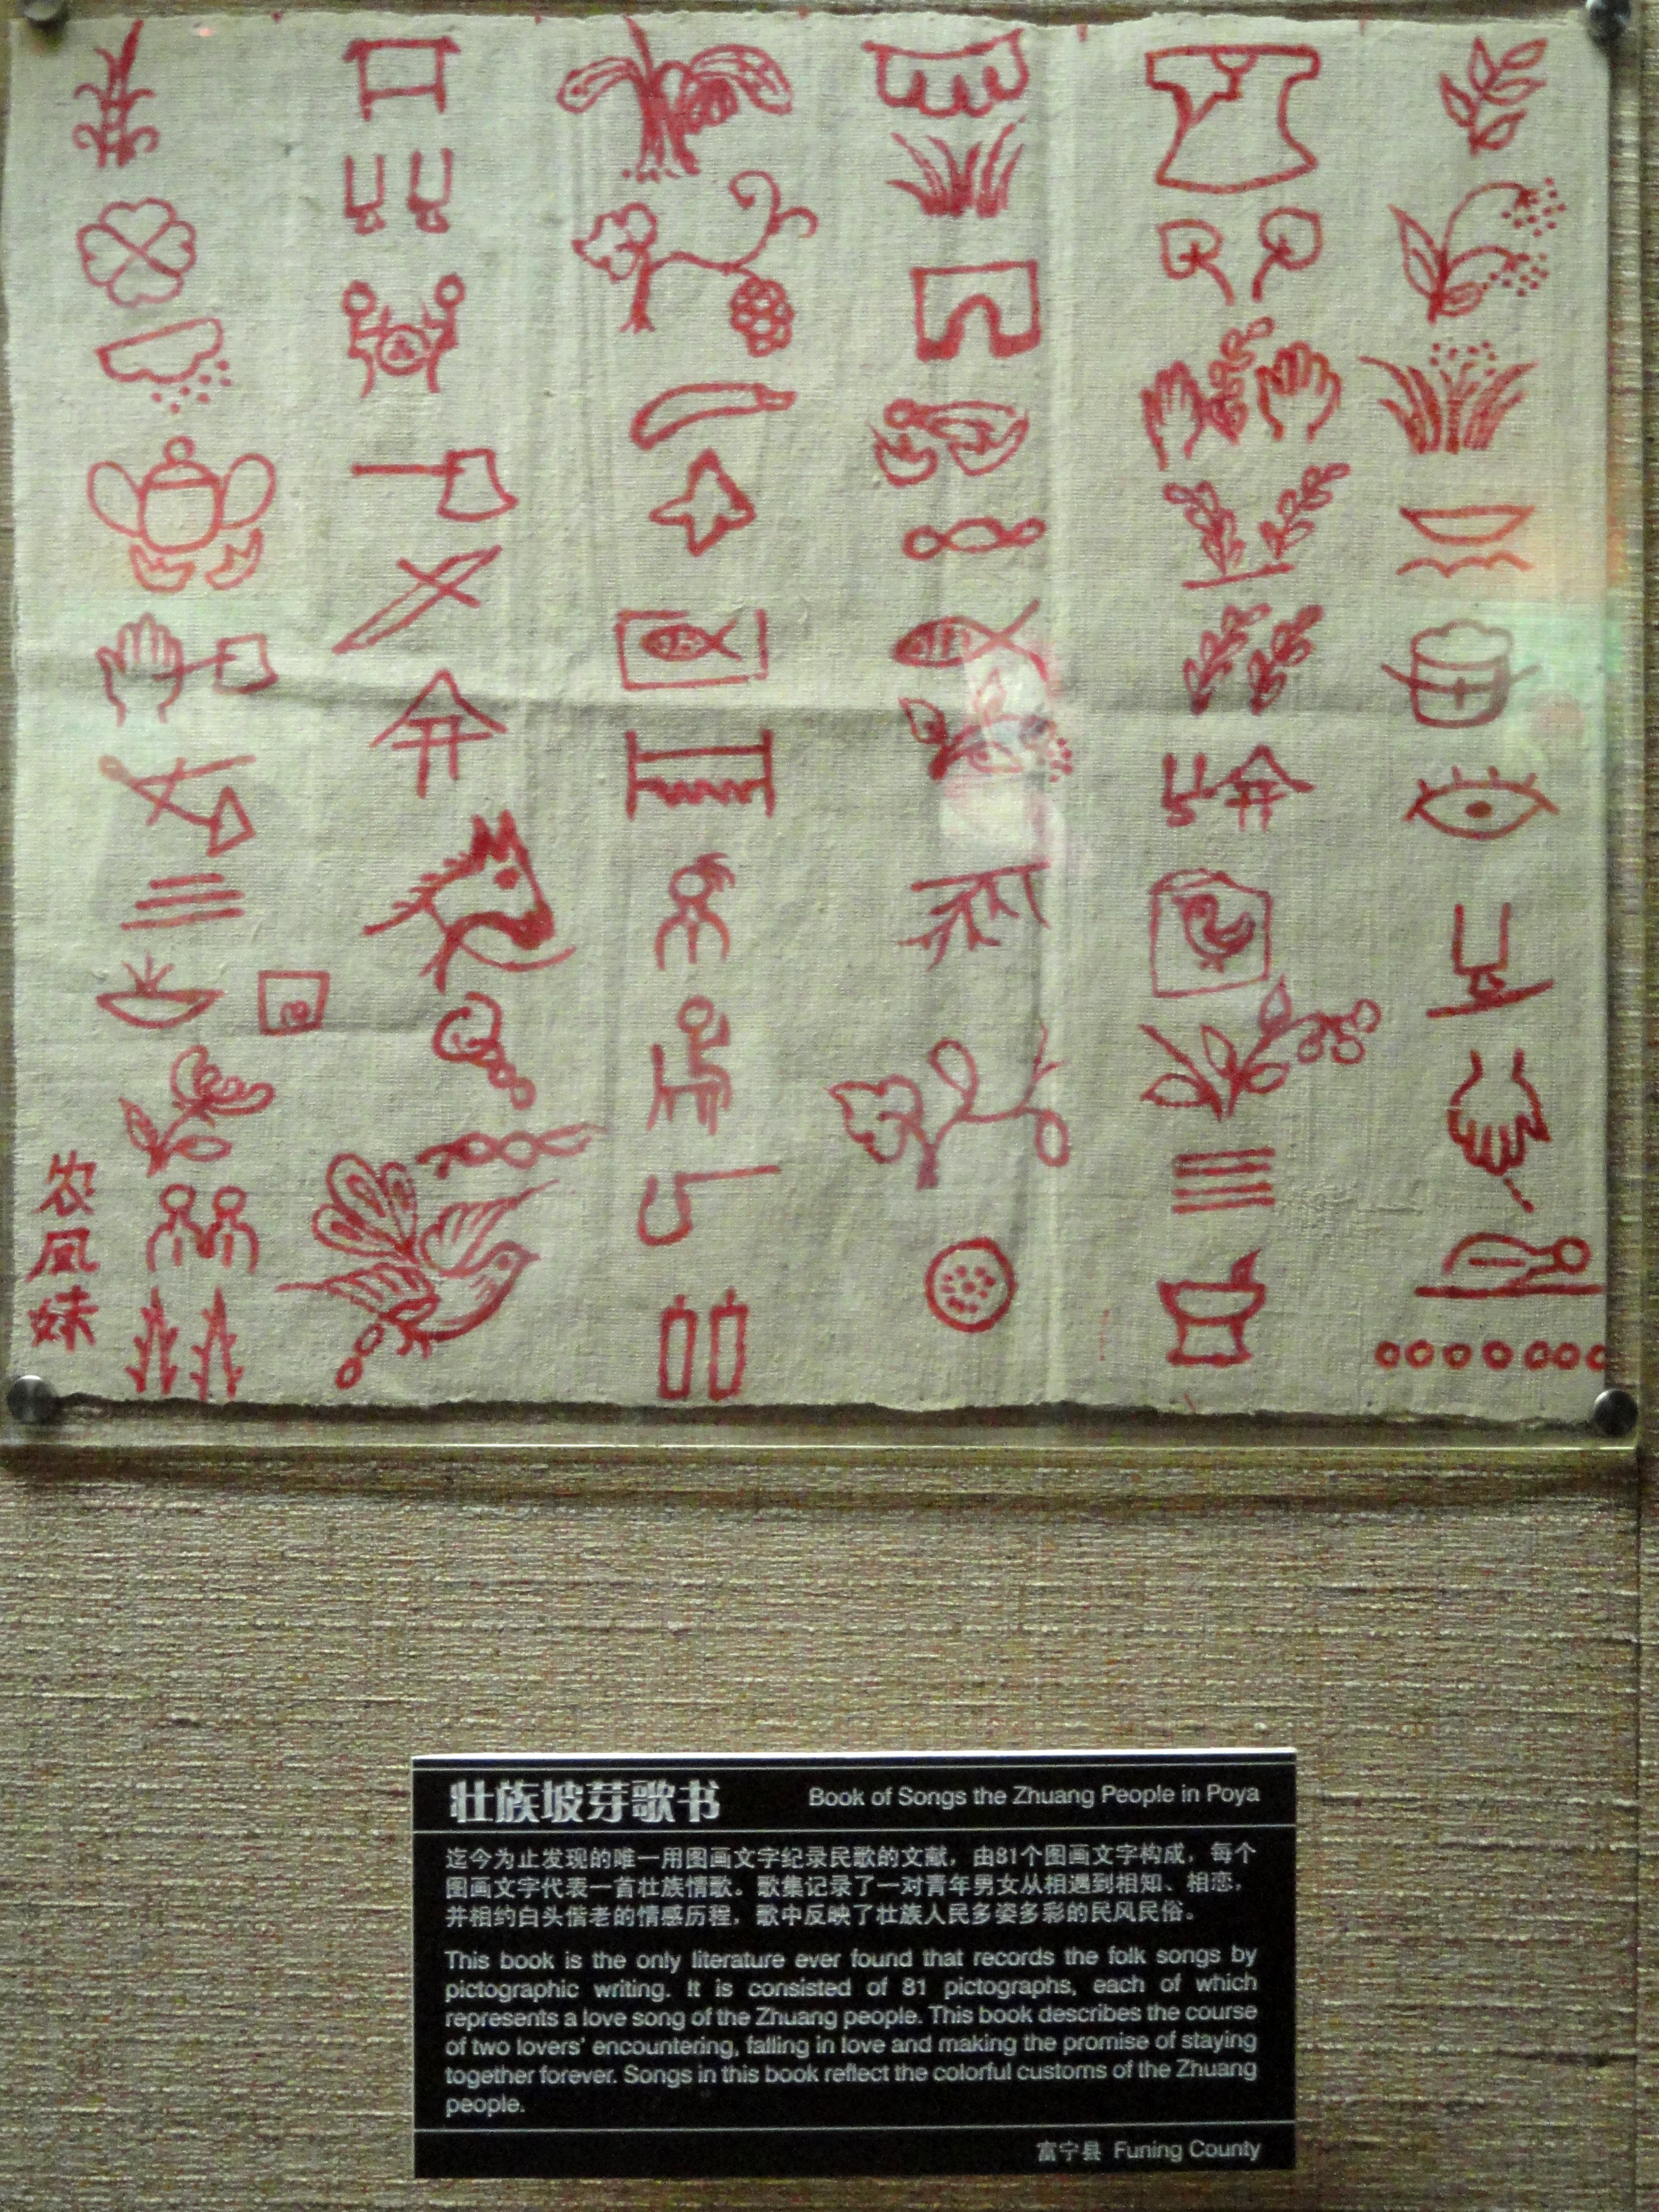 农
凤
妹
壮族坡芽歌书 Book of Songs the Zhuang People in Poya
迄今为止发现的唯一用图画文字纪录民歌的文献，由81个图画文字构成，每个
图画文字代表一首壮族情歌。歌集记录了一对青年男女从相遇到相知、相恋，
并相约白头偕老的情感历程，歌中反映了壮族人民多姿多彩的民风民俗。
This book is the only literature ever found that records the folk songs by
pictographic writing. It is consisted of 81 pictographs, each of which
represents a love song of the Zhuang people. This book describes the course
of two lovers' encountering, falling in love and making the promise of staying
together forever. Songs in this book reflect the colorful customs of the Zhuang
people.
富宁县 Funing County